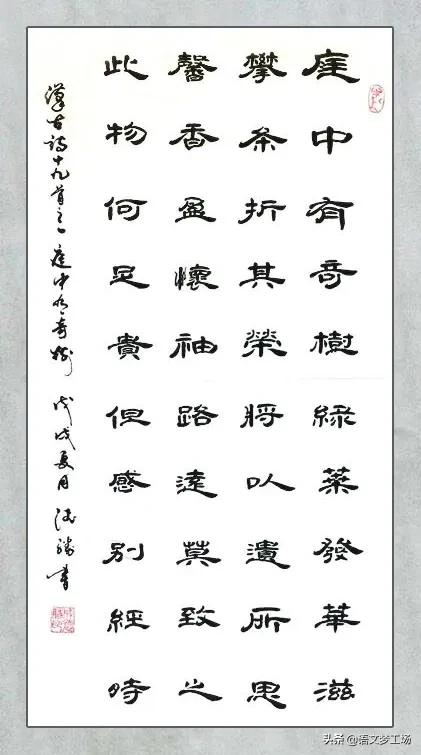 庭中有奇樹緑葉發華滋
攀条折其榮將以遺所思
馨香盈懷袖路遠莫致之
此物何足貴但感别經時
漢古詩十九首之一庭中有奇樹 戊戌夏月 勝書
头条 @语文梦工场